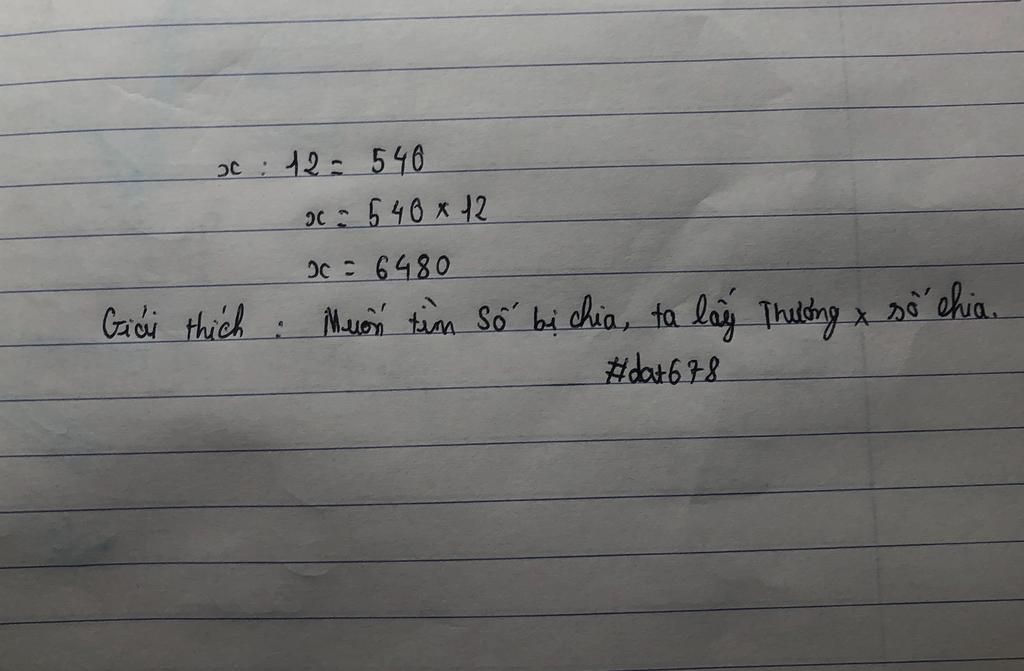 x : 12 = 540
x = 540 x 12
x = 6480
Giải thích : Muốn tìm Số bị chia, ta lấy Thương x số chia.
#dat678